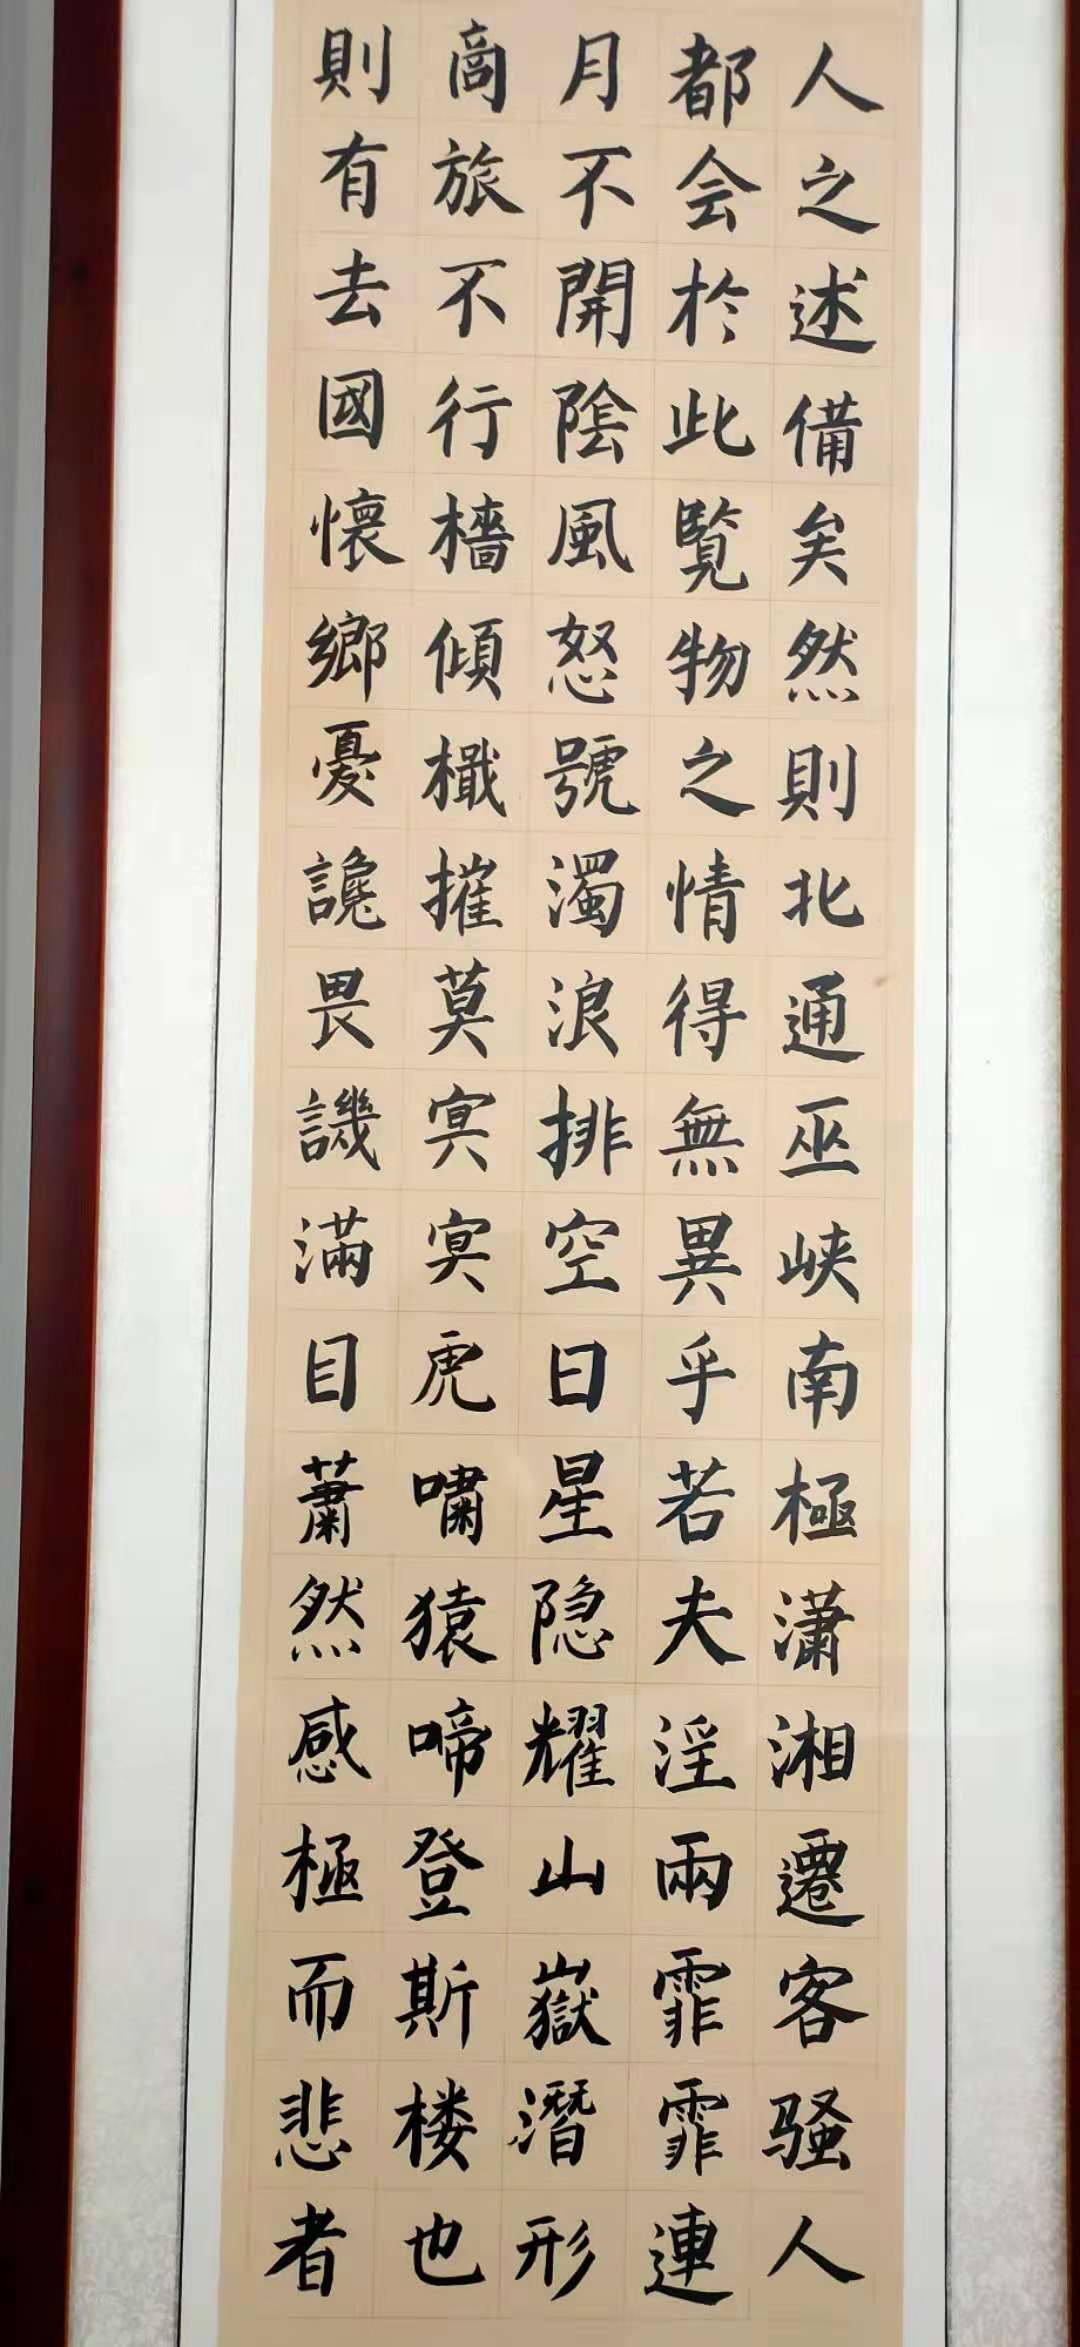 人之述備矣然則北通巫峡南極潇湘遷客骚人
都会於此覧物之情得無異乎若夫淫雨霏霏連
月不開陰風怒號濁浪排空日星隐耀山嶽潛形
商旅不行檣傾檝摧莫冥冥虎嘯猿啼登斯楼也
則有去國懷鄉憂讒畏譏滿目蕭然感極而悲者